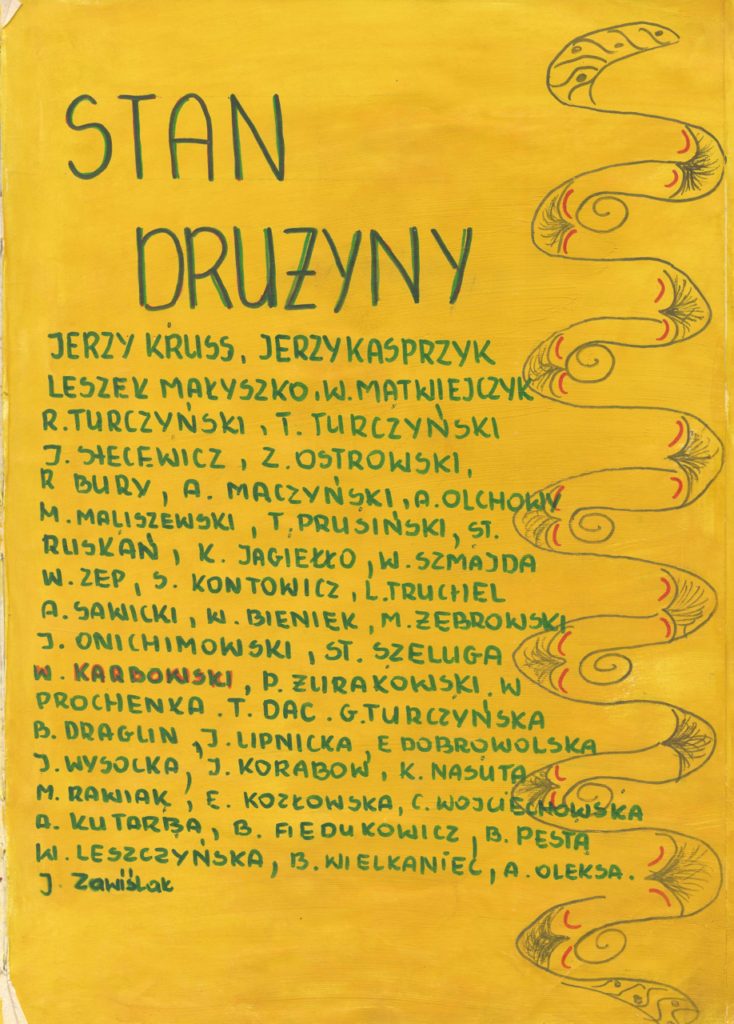 STAN
DRUŻYNY
JERZY KRUSS, JERZY KASPRZYK
LESZEK MAŁYSZKO, W. MATWIEJCZYK
R. TURCZYŃSKI, T. TURCZYŃSKI
J. SIECEWICZ, Z. OSTROWSKI,
R BURY, A. MACZYŃSKI, A. OLCHOWY
M. MALISZEWSKI, T. PRUSIŃSKI, ST.
RUSKAŃ, K. JAGIEŁŁO, W. SZMAJDA
W. ZEP, S. KONTOWICZ, L. TRUCHEL
A. SAWICKI, W. BIENIEK, M. ŻEBROWSKI
J. ONICHIMOWSKI, ST. SZELUGA
W. KARBOWSKI, P. ŻURAKOWSKI. W
PROCHENKA. T. DAC. G. TURCZYŃSKA
B. DRAGLIN, J. LIPNICKA, E DOBROWOLSKA
J. WYSOCKA, J. KORABOW, K. NASUTA
M. RAWIAK, E. KOZŁOWSKA, C. WOJCIECHOWSKA
A. KUTARBA, B. FIEDUKOWICZ, B. PESTA
W. LESZCZYŃSKA, B. WIELKANIEC, A. OLEKSA.
J. Zawiślak